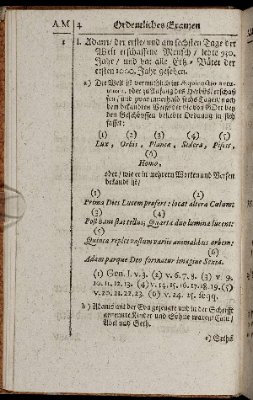 A.M. 4 Ordentliches Examen
1 1. Adam/ der erste und am sechsten Tage der
Welt erschaffene Mensch/ lebte 930.
Jahr/ und hat alle Ertz-Väter der
ersten 1000. Jahr gesehen.
a) Die Welt ist
oder zu Anfang des Herbsts erschaf-
fen/ und zwar innerhalb sechs Tagen/ nach
dem bekandten Vers/ der die von Gott bey
den Geschöpffen beliebte Ordnung in sich
fasset:
(1) (2) (3) (4) (5)
Lux, Orbis, Planta, Sidera, Pisces,
(6)
Homo,
oder/ wie er in mehrern Worten und Versen
bekandt ist/
(1) (2)
Prima Dies Lucem profert: locat altera Cœlum:
(3) (4)
Post dam stat tellus; Quarta duo lumina lucent:
(5)
Quinta replet vastum variis animalibus orbem;
(6)
Adam parque Deo formatur imagine Sexta.
(1) Gen. I. v. 3. (2) v. 6. 7. 8. (3) v. 9.
10. 11. 12. 13. (4) v. 14. 15. 16. 17. 18. 19. (5)
v. 20. 21. 22. 23. (6) v. 24. 25. sqq.
b) Adams mit der Eva gezeugte und in der Schrifft
genennte Kinder und Söhne waren Cain/
Abel und Seth.